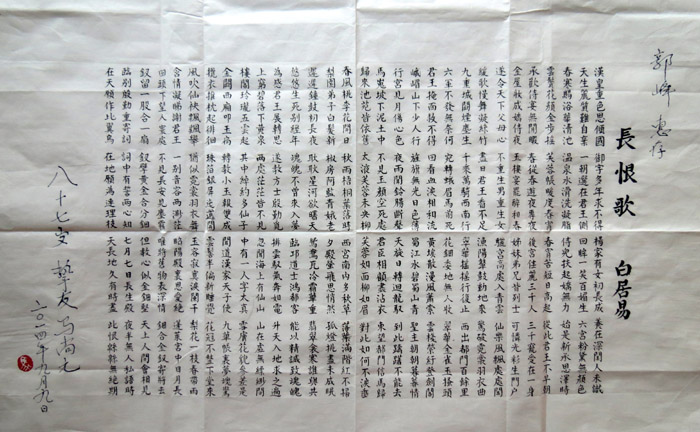 郭峰 惠存
長恨歌 白居易
漢皇重色思傾國 御宇多年求不得 楊家有女初長成 養在深閨人未識
天生麗質難自棄 一朝選在君王側 回眸一笑百媚生 六宮粉黛無顏色
春寒賜浴華清池 溫泉水滑洗凝脂 侍兒扶起嬌無力 始是新承恩澤時
雲鬢花顏金步搖 芙蓉帳暖度春宵 春宵苦短日高起 從此君王不早朝
承歡侍宴無閒暇 春從春遊夜專夜 後宮佳麗三千人 三千寵愛在一身
金屋妝成嬌侍夜 玉樓宴罷醉和春 姊妹弟兄皆列土 可憐光彩生門戶
遂令天下父母心 不重生男重生女 驪宮高處入青雲 仙樂風飄處處聞
緩歌慢舞凝絲竹 盡日君王看不足 漁陽鼙鼓動地來 驚破霓裳羽衣曲
九重城闕煙塵生 千乘萬騎西南行 翠華搖搖行復止 西出都門百餘里
六軍不發無奈何 宛轉蛾眉馬前死 花鈿委地無人收 翠翹金雀玉搔頭
君王掩面救不得 回看血淚相和流 黃埃散漫風蕭索 雲棧縈紆登劍閣
峨嵋山下少人行 旌旗無光日色薄 蜀江水碧蜀山青 聖主朝朝暮暮情
行宮見月傷心色 夜雨聞鈴腸斷聲 天旋日轉迴龍馭 到此躊躇不能去
馬嵬坡下泥土中 不見玉顏空死處 君臣相顧盡沾衣 東望都門信馬歸
歸來池苑皆依舊 太液芙蓉未央柳 芙蓉如面柳如眉 對此如何不淚垂
春風桃李花開日 秋雨梧桐葉落時 西宮南內多秋草 落葉滿階紅不掃
梨園弟子白髮新 椒房阿監青娥老 夕殿螢飛思悄然 孤燈挑盡未成眠
遲遲鐘鼓初長夜 耿耿星河欲曙天 鴛鴦瓦冷霜華重 翡翠衾寒誰與共
悠悠生死別經年 魂魄不曾來入夢 臨邛道士鴻都客 能以精誠致魂魄
為感君王展轉思 遂教方士殷勤覓 排雲馭氣奔如電 升天入地求之遍
上窮碧落下黃泉 兩處茫茫皆不見 忽聞海上有仙山 山在虛無縹緲間
樓閣玲瓏五雲起 其中綽約多仙子 中有一人字太真 雪膚花貌參差是
金闕西廂叩玉扃 轉教小玉報雙成 聞道漢家天子使 九華帳裏夢魂驚
攬衣推枕起徘徊 珠箔銀屏迤邐開 雲鬢半偏新睡覺 花冠不整下堂來
風吹仙袂飄颻舉 猶似霓裳羽衣舞 玉容寂寞淚闌干 梨花一枝春帶雨
含情凝睇謝君王 一別音容兩渺茫 昭陽殿裏恩愛絕 蓬萊宮中日月長
回頭下望人寰處 不見長安見塵霧 唯將舊物表深情 鈿合金釵寄將去
釵留一股合一扇 釵擘黃金合分鈿 但教心似金鈿堅 天上人間會相見
臨別殷勤重寄詞 詞中有誓兩心知 七月七日長生殿 夜半無人私語時
在天願作比翼鳥 在地願為連理枝 天長地久有時盡 此恨綿綿無絕期
八十七歲 摯友 馬尚
二〇一四年九月九日